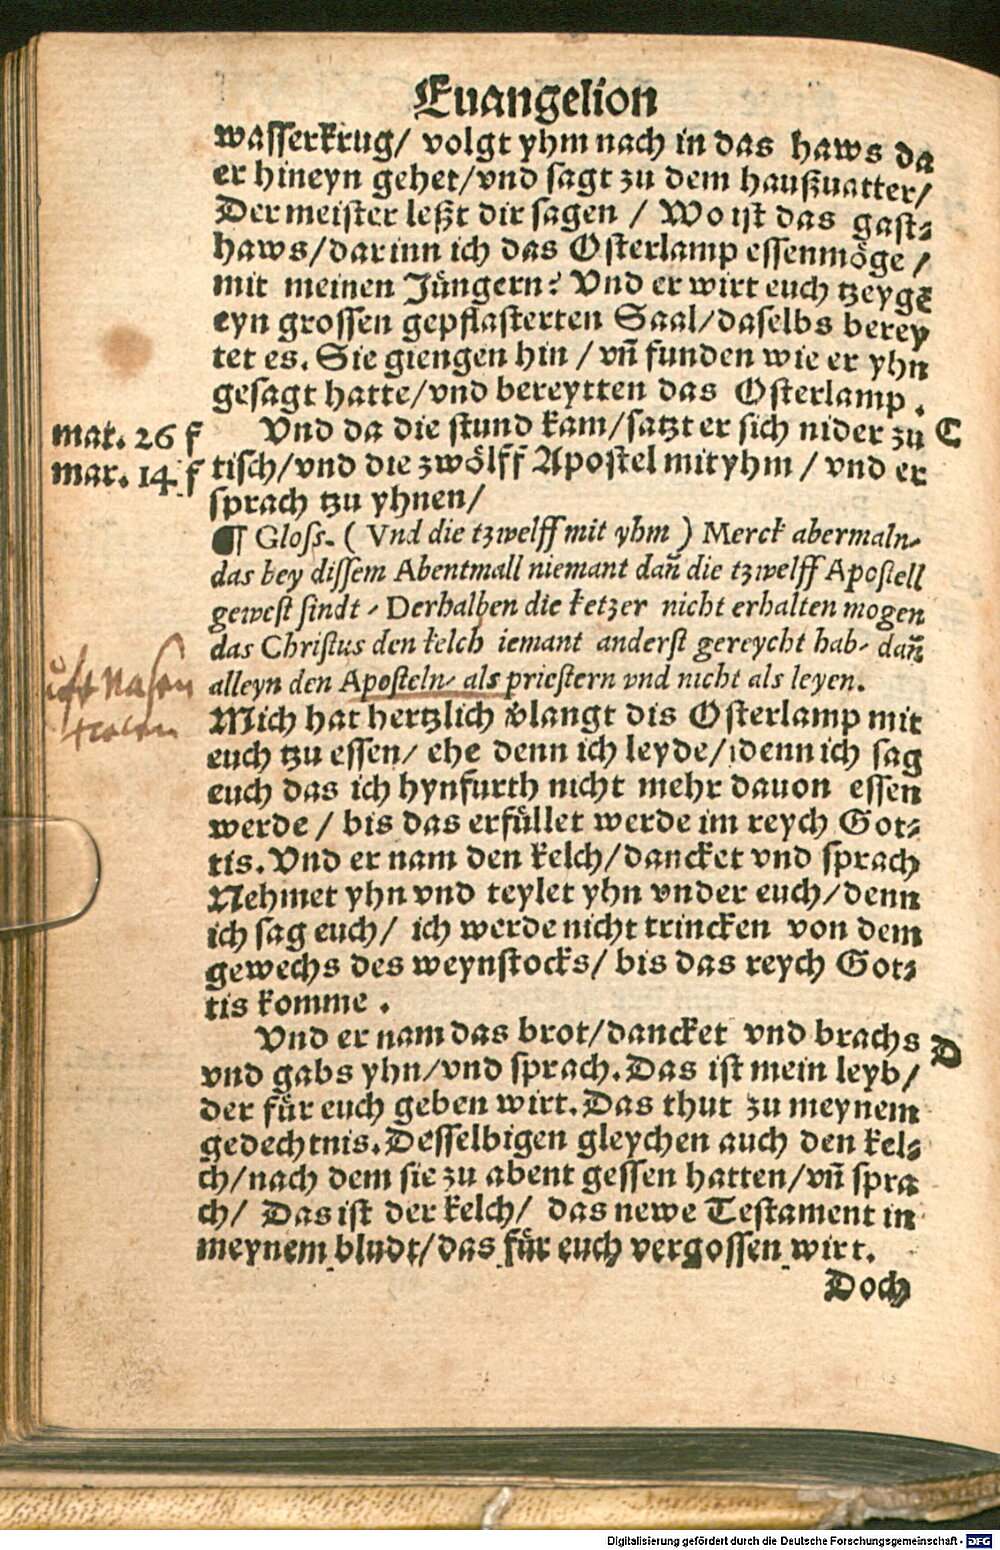 Euangelion
wasserkrug/ volgt yhm nach in das haws da
er hineyn gehet/vnd sagt zu dem haußuatter/
Der meister leßt dir sagen / Wo ist das gast⸗
haws/darinn ich das Osterlamp essenmöge /
mit meinen Jüngern? Vnd er wirt euch tzeygē
eyn grossen gepflasterten Saal/daselbs berey
tet es. Sie giengen hin / vñ funden wie er yhn
gesagt hatte/vnd bereytten das Osterlamp.
mat. 26 f Vnd da die stund kam/satzt er sich nider zu C
mar. 14. f tisch/vnd die zwölff Apostel mit yhm / vnd er
sprach tzu yhnen/
¶ Gloss. ( Vnd die tzwelff mit yhm ) Merck abermaln⸗
das bey dissem Abentmall niemant dañ die tzwelff Apostell
gewest sindt ⸗ Derhalben die ketzer nicht erhalten mogen
das Christus den kelch iemant anderst gereycht hab⸗ dañ
alleyn den Aposteln⸗ als priestern vnd nicht als leyen.
Mich hat hertzlich v̈langt dis Osterlamp mit
euch tzu essen/ ehe denn ich leyde/ denn ich sag
euch das ich hynfurth nicht mehr dauon essen
werde / bis das erfüllet werde im reych Got⸗
tis. Vnd er nam den kelch/dancket vnd sprach
Nehmet yhn vnd teylet yhn vnder euch/denn
ich sag euch/ ich werde nicht trincken von dem
gewechs des weynstocks/ bis das reych Got⸗
tis komme .
Vnd er nam das brot/dancket vnd brachs D
vnd gabs yhn/vnd sprach. Das ist mein leyb/
der für euch geben wirt. Das thut zu meynem
gedechtnis. Desselbigen gleychen auch den kel⸗
ch/nach dem sie zu abent gessen hatten/vñ spra
ch/ Das ist der kelch/ das newe Testament in
meynem bludt/das für euch vergossen wirt.
Doch
Digitalisierung gefördert durch die Deutsche Forschungsgemeinschaft - DFG